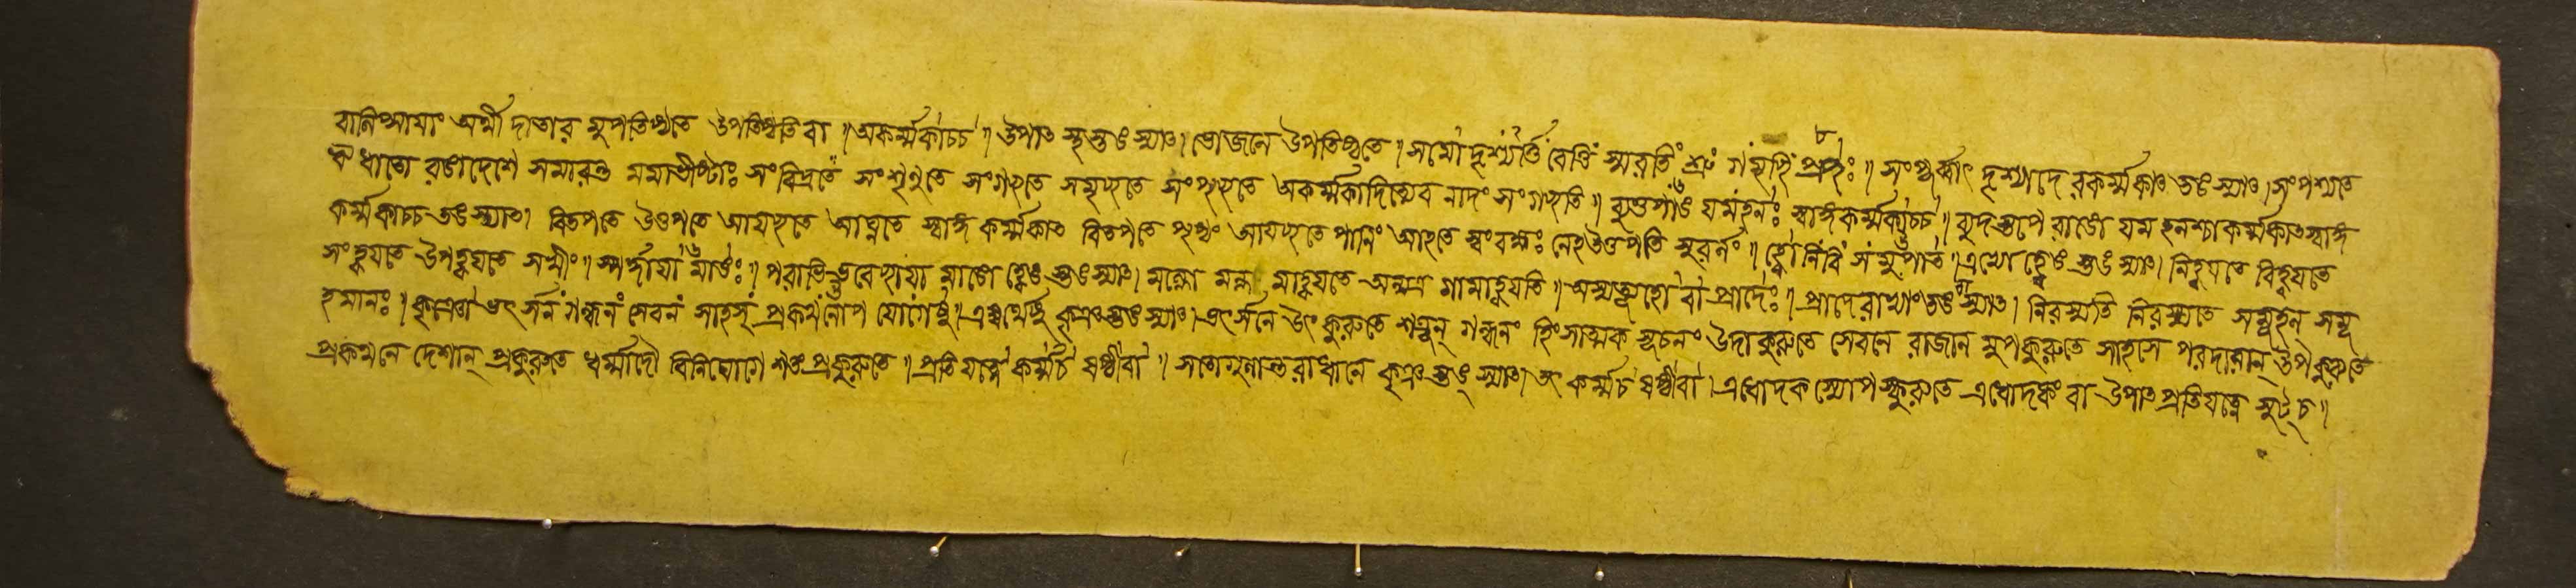 বানিপ্সায়াং অর্থী দাতার মুপতিষ্ঠতে উপতিষ্ঠতি বা ॥ অকর্ম্মকাচ্চ ॥ উপাৎ স্থস্তঙ স্যাৎ। ভোজনে উপতিষ্ঠতে ॥ সমো দৃশ্যর্ত্তি বেত্তি স্মরতি শ্রু গম প্রচ্ছঃ ॥ সংপূর্ব্বাৎ দৃশ্যাদে রকর্ম্মকাৎ তঙ স্যাৎ। সংপশ্যতে
ধাতো রঙাদেশে সমারত মমাভীষ্টাঃ সংবিদ্রতে সংশৃণুতে সংগচ্ছতে সমৃচ্ছতে সংপৃচ্ছতে অকর্ম্মকাদিত্যেব নাদং সংগচ্ছতি ॥ ব্যুত্তপাঙ যমহনঃ স্বাঙ্গকর্ম্মকাচ্চ ॥ ব্যুদস্তপে রাঙো যম হনশ্চাকর্ম্মকাৎ স্বাঙ্গ
কর্ম্মকাচ্চ তঙ স্যাৎ। বিতপতে উত্তপতে আযচ্ছতে আঘ্নতে স্বাঙ্গ কর্ম্মকাৎ বিতপতে আযচ্ছতে পানিং আহতে স্বং বক্ষঃ নেহ উত্তপতি সুবর্নং ॥ হ্বো র্নিবি সংমুপাত ॥ এভ্যো হ্বেঙ স্তঙ স্যাৎ। নিহ্বয়তে বিহ্বয়তে
সংহ্বয়তে উপহ্বয়তে সখীং ॥ স্পর্দ্ধায়া মাঙঃ ॥ পরাভি মাঙো হ্বেঙ স্তঙ স্যাৎ। মল্লো মল্ল মাহ্বয়তে অন্যত্র গামাহ্বয়তি ॥ বা প্রাদেঃ ॥ প্রাদেরাভ্যাং তঙ স্যাৎ। নিরস্যতি নিরস্যতে সমূহন্ সমূ
হমানঃ ॥ কৃঞো গন্ধনং সেবনং সাহস প্রকথনোপ যোগেষু। এষ্বর্থেষু কৃঞস্তঙ স্যাৎ। উৎ কুরুতে শত্রুন্ গন্ধনং হিংসাত্মক সূচনং উদাকুরুতে সেবনে রাজান মুপকুরুতে সাহসে পরদারান্ উপকুরুতে
প্রকথনে দেশান্ প্রকুরুতে ধর্ম্মাদৌ বিনিয়োগে শতং প্রকুরুতে ॥ প্রতিযত্নে কর্ম্মচ ষষ্ঠীবা ॥ সতোগুনান্তরাধানে কৃঞ স্তঙ্ স্যাৎ। তৎ কর্ম্মচ ষষ্ঠীবা। এধোদক স্যোপস্কুরুতে এধোদকং বা উপাৎ প্রতিযত্নে সুট্ চ ॥